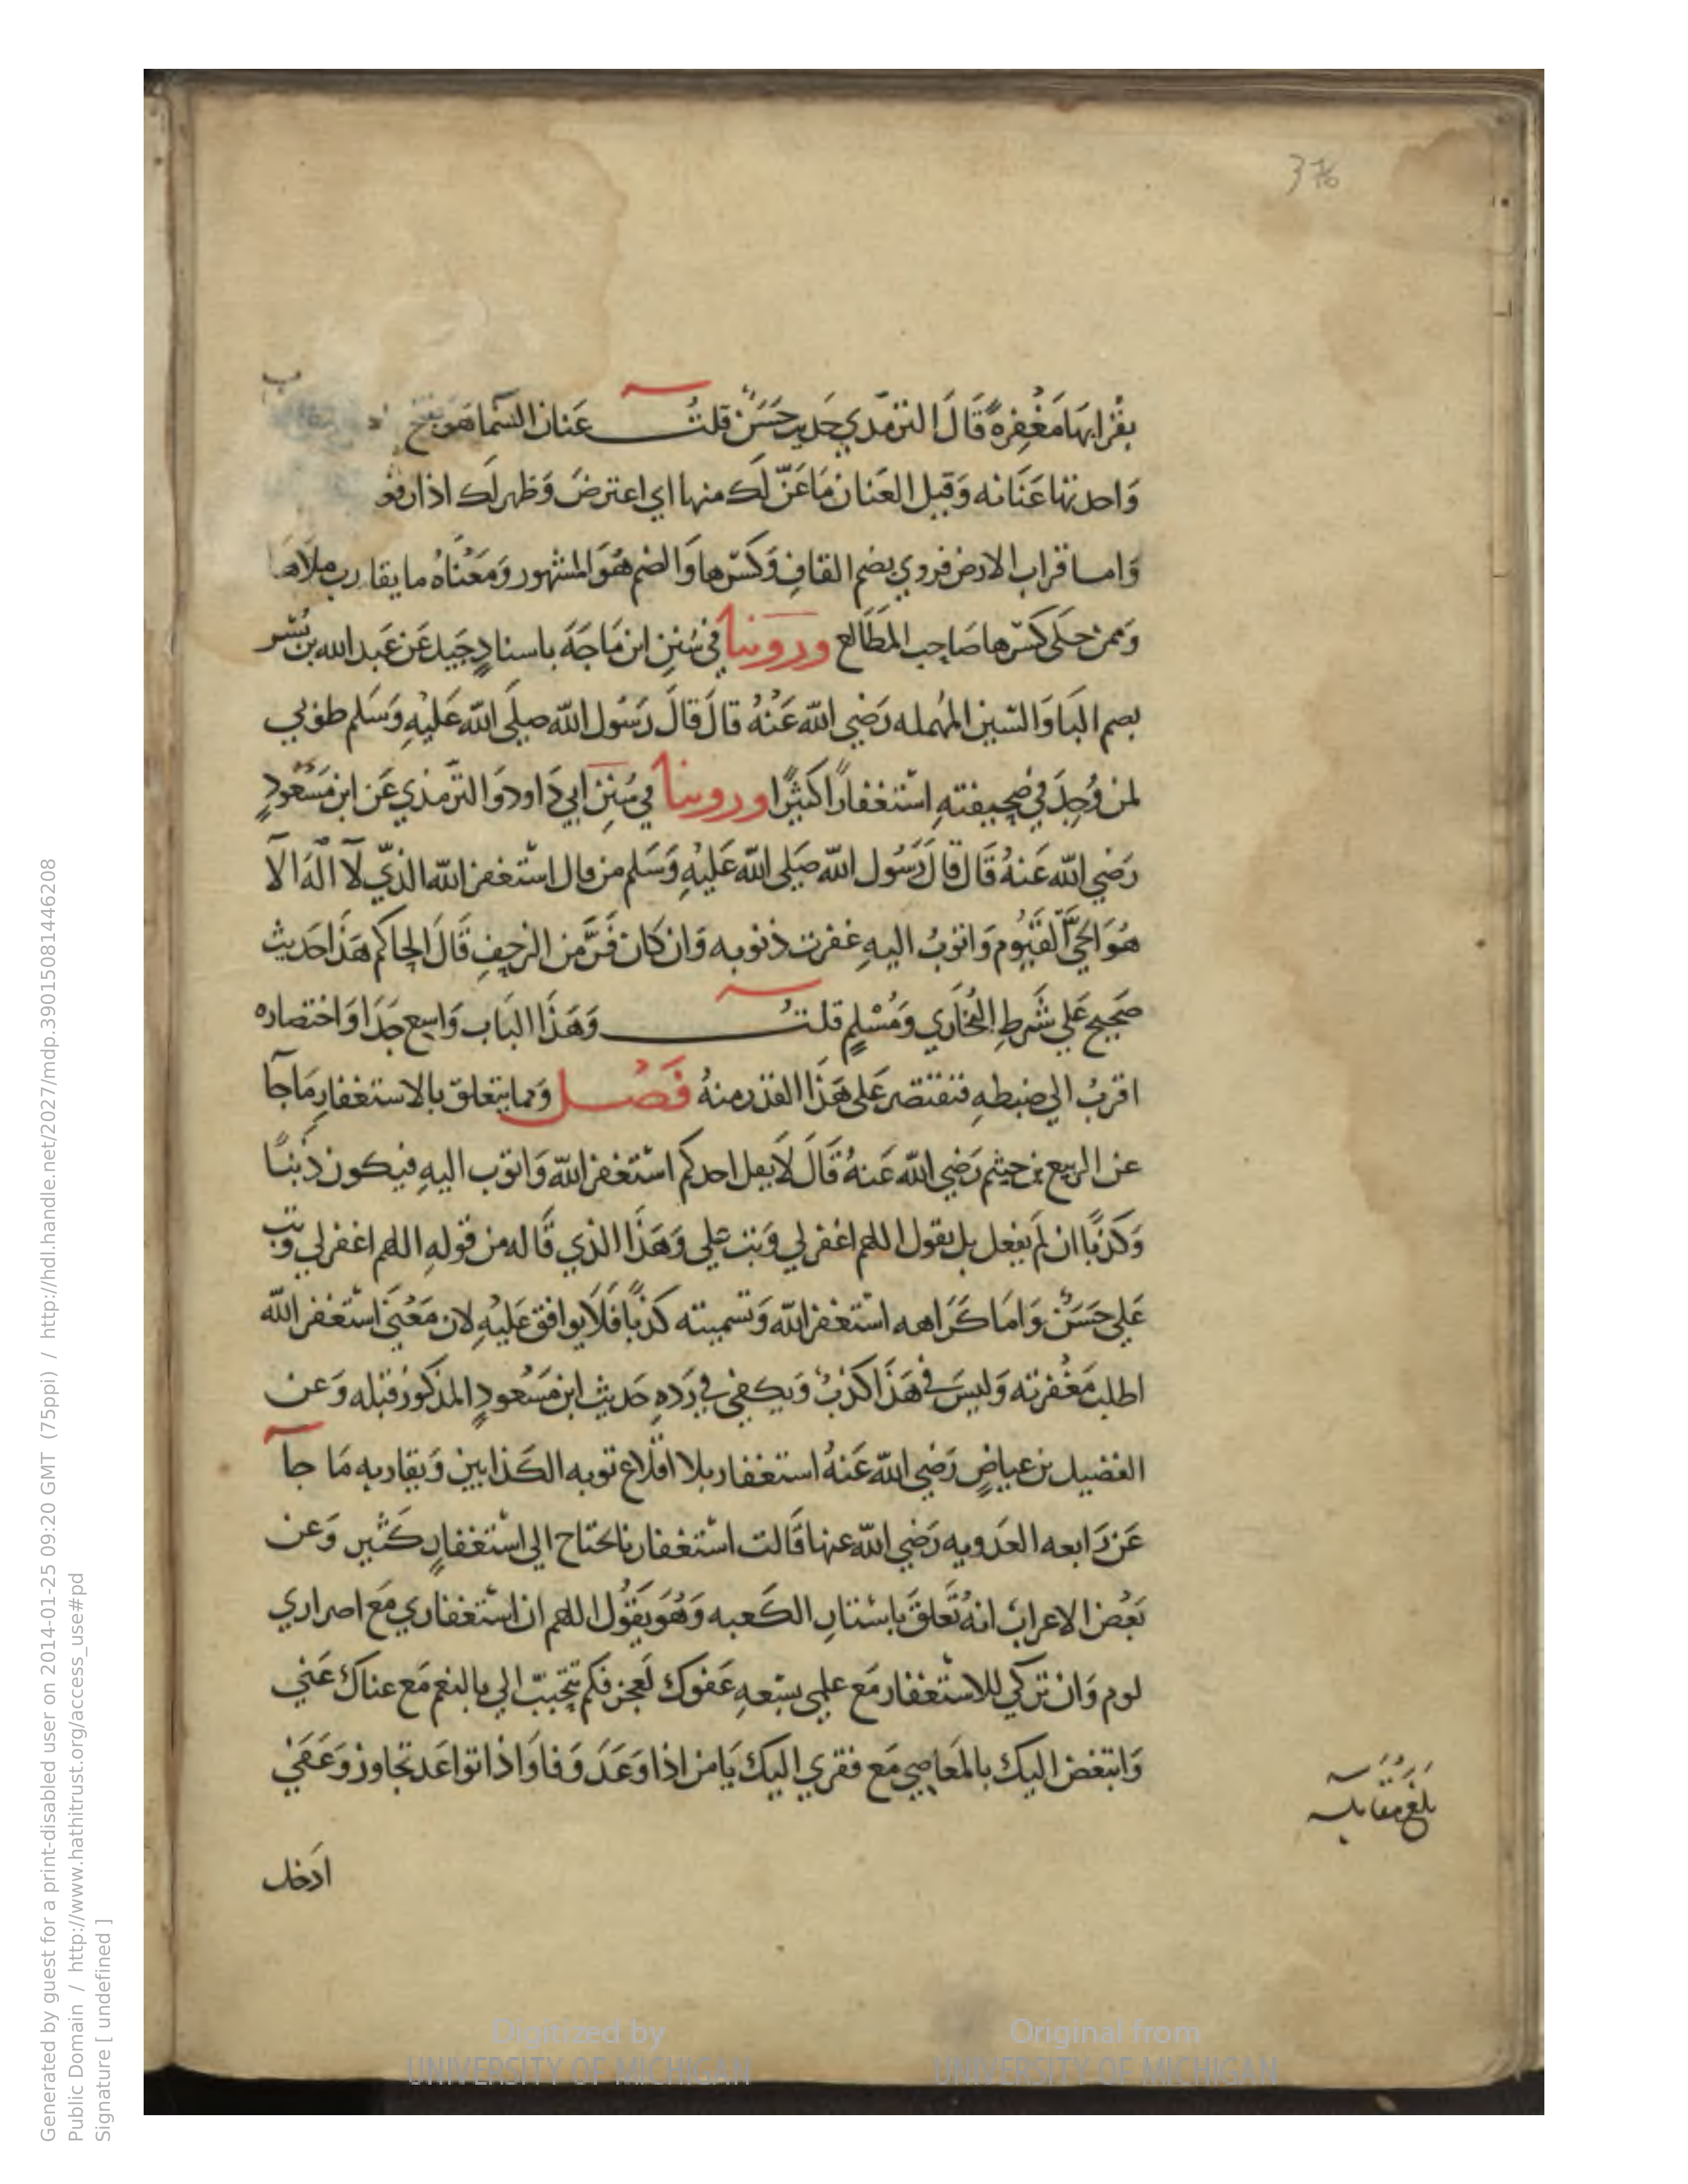 376
بقرابها مغفرة قال الترمذي حديث حسن قلت عنان السما هو بفتح
واحدتها عنانه وقيل العنان ما عن لك منها اي اعترض وظهر لك اذا رفع
واما قراب الارض فروي بضم القاف وكسرها والضم هو المشهور ومعناه ما يقارب ملاها
وممن حكى كسرها صاحب المطالع وروينا في سنن ابن ماجة باسناد جيد عن عبد الله بن بسر
بضم البا والسين المهمله رضي الله عنه قال قال رسول الله صلى الله عليه وسلم طوبي
لمن وجد في صحيفته استغفارا كثيرا وروينا في سنن ابي داود والترمذي عن ابن مسعود
رضي الله عنه قال قال رسول الله صلى الله عليه وسلم من قال استغفر الله الذي لا اله الا
هو الحي القيوم واتوب اليه غفرت ذنوبه وان كان فر من الزحف قال الحاكم هذا حديث
صحيح علي شرط البخاري ومسلم قلت وهذا الباب واسع جدا واختصاره
اقرب الي ضبطه فنقتصر على هذا القدر منه فصل ومما يتعلق بالاستغفار ما جآ
عن الربيع بن خيثم رضي الله عنه قال لا يقل احدكم استغفر الله واتوب اليه فيكون ذنبا
وكذبا ان لم يفعل بل يقول اللهم اغفر لي وتب علي وهذا الذي قاله من قوله اللهم اغفر لي وتب
علي حسن واما كراهه استغفر الله وتسميته كذبا فلا يوافق عليه لان معنى استغفر الله
اطلب مغفرته وليس في هذا كذب ويكفي في رده حديث ابن مسعود المذكور قبله وعن
الفضيل بن عياض رضي الله عنه استغفار بلا اقلاع توبه الكذابين ويقاربه ما جآ
عن رابعه العدويه رضي الله عنها قالت استغفارنا يحتاج الي استغفار كثير وعن
بعض الاعراب انه تعلق باستار الكعبه وهو يقول اللهم ان استغفاري مع اصراري
لوم وان تركي للاستغفار مع علمي بسعه عفوك لعجز فكم تتحبب الي بالنعم مع غناك عني
واتبغض اليك بالمعاصي مع فقري اليك يا من اذا وعد وفا واذا تواعد تجاوز وعفى
بلغ مقابله
ادخل
Digitized by
UNIVERSITY OF MICHIGAN
Original from
UNIVERSITY OF MICHIGAN
Generated by guest for a print-disabled user on 2014-01-25 09:20 GMT (75ppi) / http://hdl.handle.net/2027/mdp.39015081446208
Public Domain / http://www.hathitrust.org/access_use#pd
Signature [ undefined ]